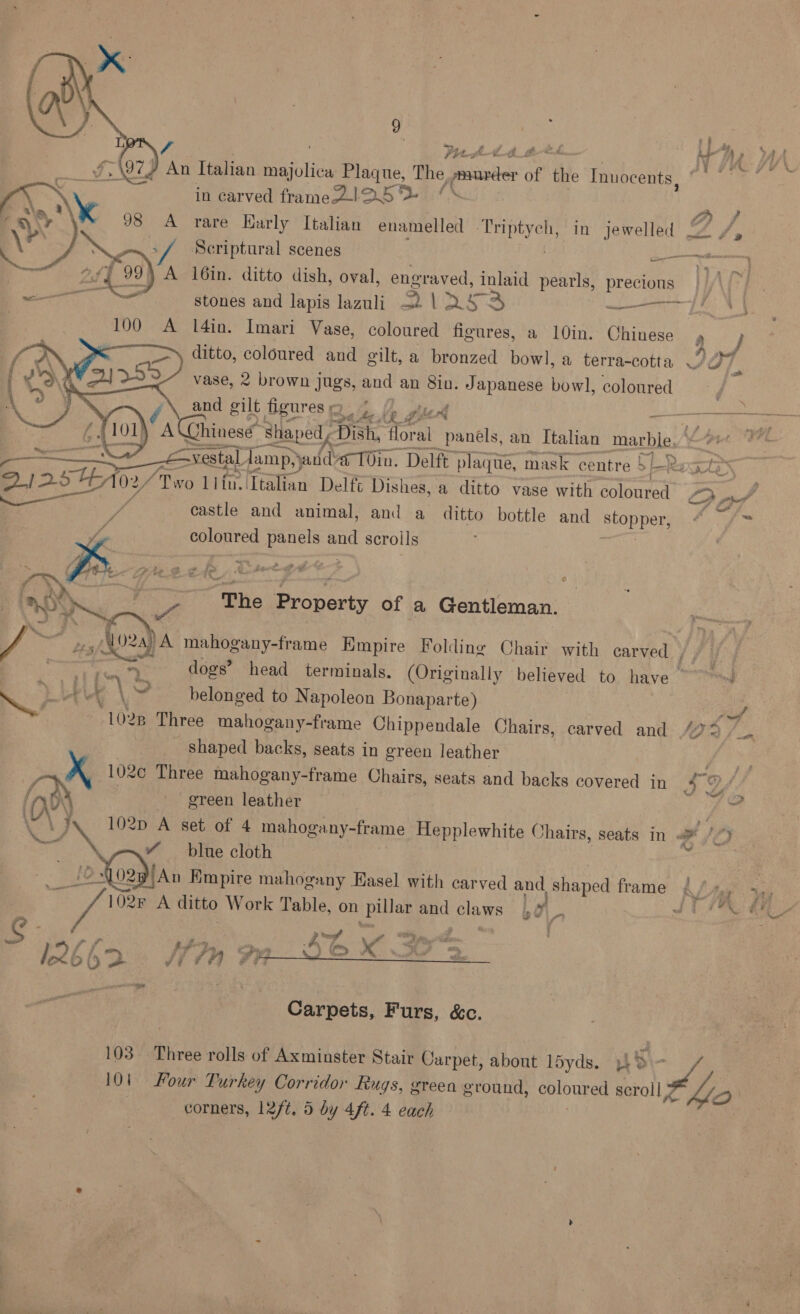 9
97 An Italian majolica Plaque, The murder of the Innocents,
in carved frame 21252
98 A rare Early Italian enamelled Triptych, in jewelled
Scriptural scenes
99 A 16in. ditto dish, oval, engraved, inlaid pearls, precious
stones and lapis lazuli 21253
100 A 14in. Imari Vase, coloured figures, a 10in. Chinese
ditto, coloured and gilt, a bronzed bowl, a terra-cotta
vase, 2 brown jugs, and an 8in. Japanese bowl, coloured
and gilt figures
101 A Chinese shaped Dish, floral panels, an Italian marble
vestal lamp, and a 10in. Delft plaque, mask centre
21254 102 Two 11in. Italian Delft Dishes, a ditto vase with coloured
castle and animal, and a ditto bottle and stopper,
coloured panels and scrolls
The Property of a Gentleman.
102A A mahogany-frame Empire Folding Chair with carved
dogs' head terminals. (Originally believed to have
belonged to Napoleon Bonaparte)
102B Three mahogany-frame Chippendale Chairs, carved and
shaped backs, seats in green leather
102C Three mahogany-frame Chairs, seats and backs covered in
green leather
102D A set of 4 mahogany-frame Hepplewhite Chairs, seats in
blue cloth
102E An Empire mahogany Easel with carved and shaped frame
102F A ditto Work Table, on pillar and claws
Carpets, Furs, &c.
103 Three rolls of Axminster Stair Carpet, about 15yds.
104 Four Turkey Corridor Rugs, green ground, coloured scroll
corners, 12ft. 5 by 4ft. 4 each